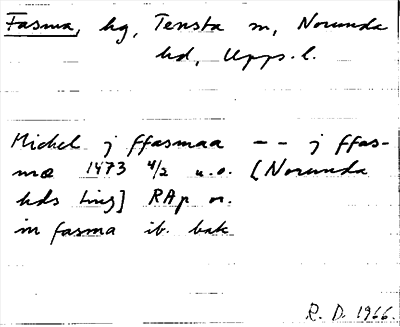 Fasma, hg, Tensta sn, Norunda
hd, Upps. l.
Michel j ffasmaa -- j ffas-
mæ 1473 4/2 u.o. [Norunda
hds ting] RAp or.
in fasma ib. bak
R. D. 1966.